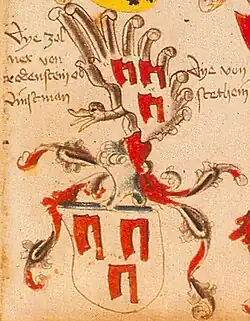 Dye zol
ner von
rodenstein od
dinstman
Dye von
stethein